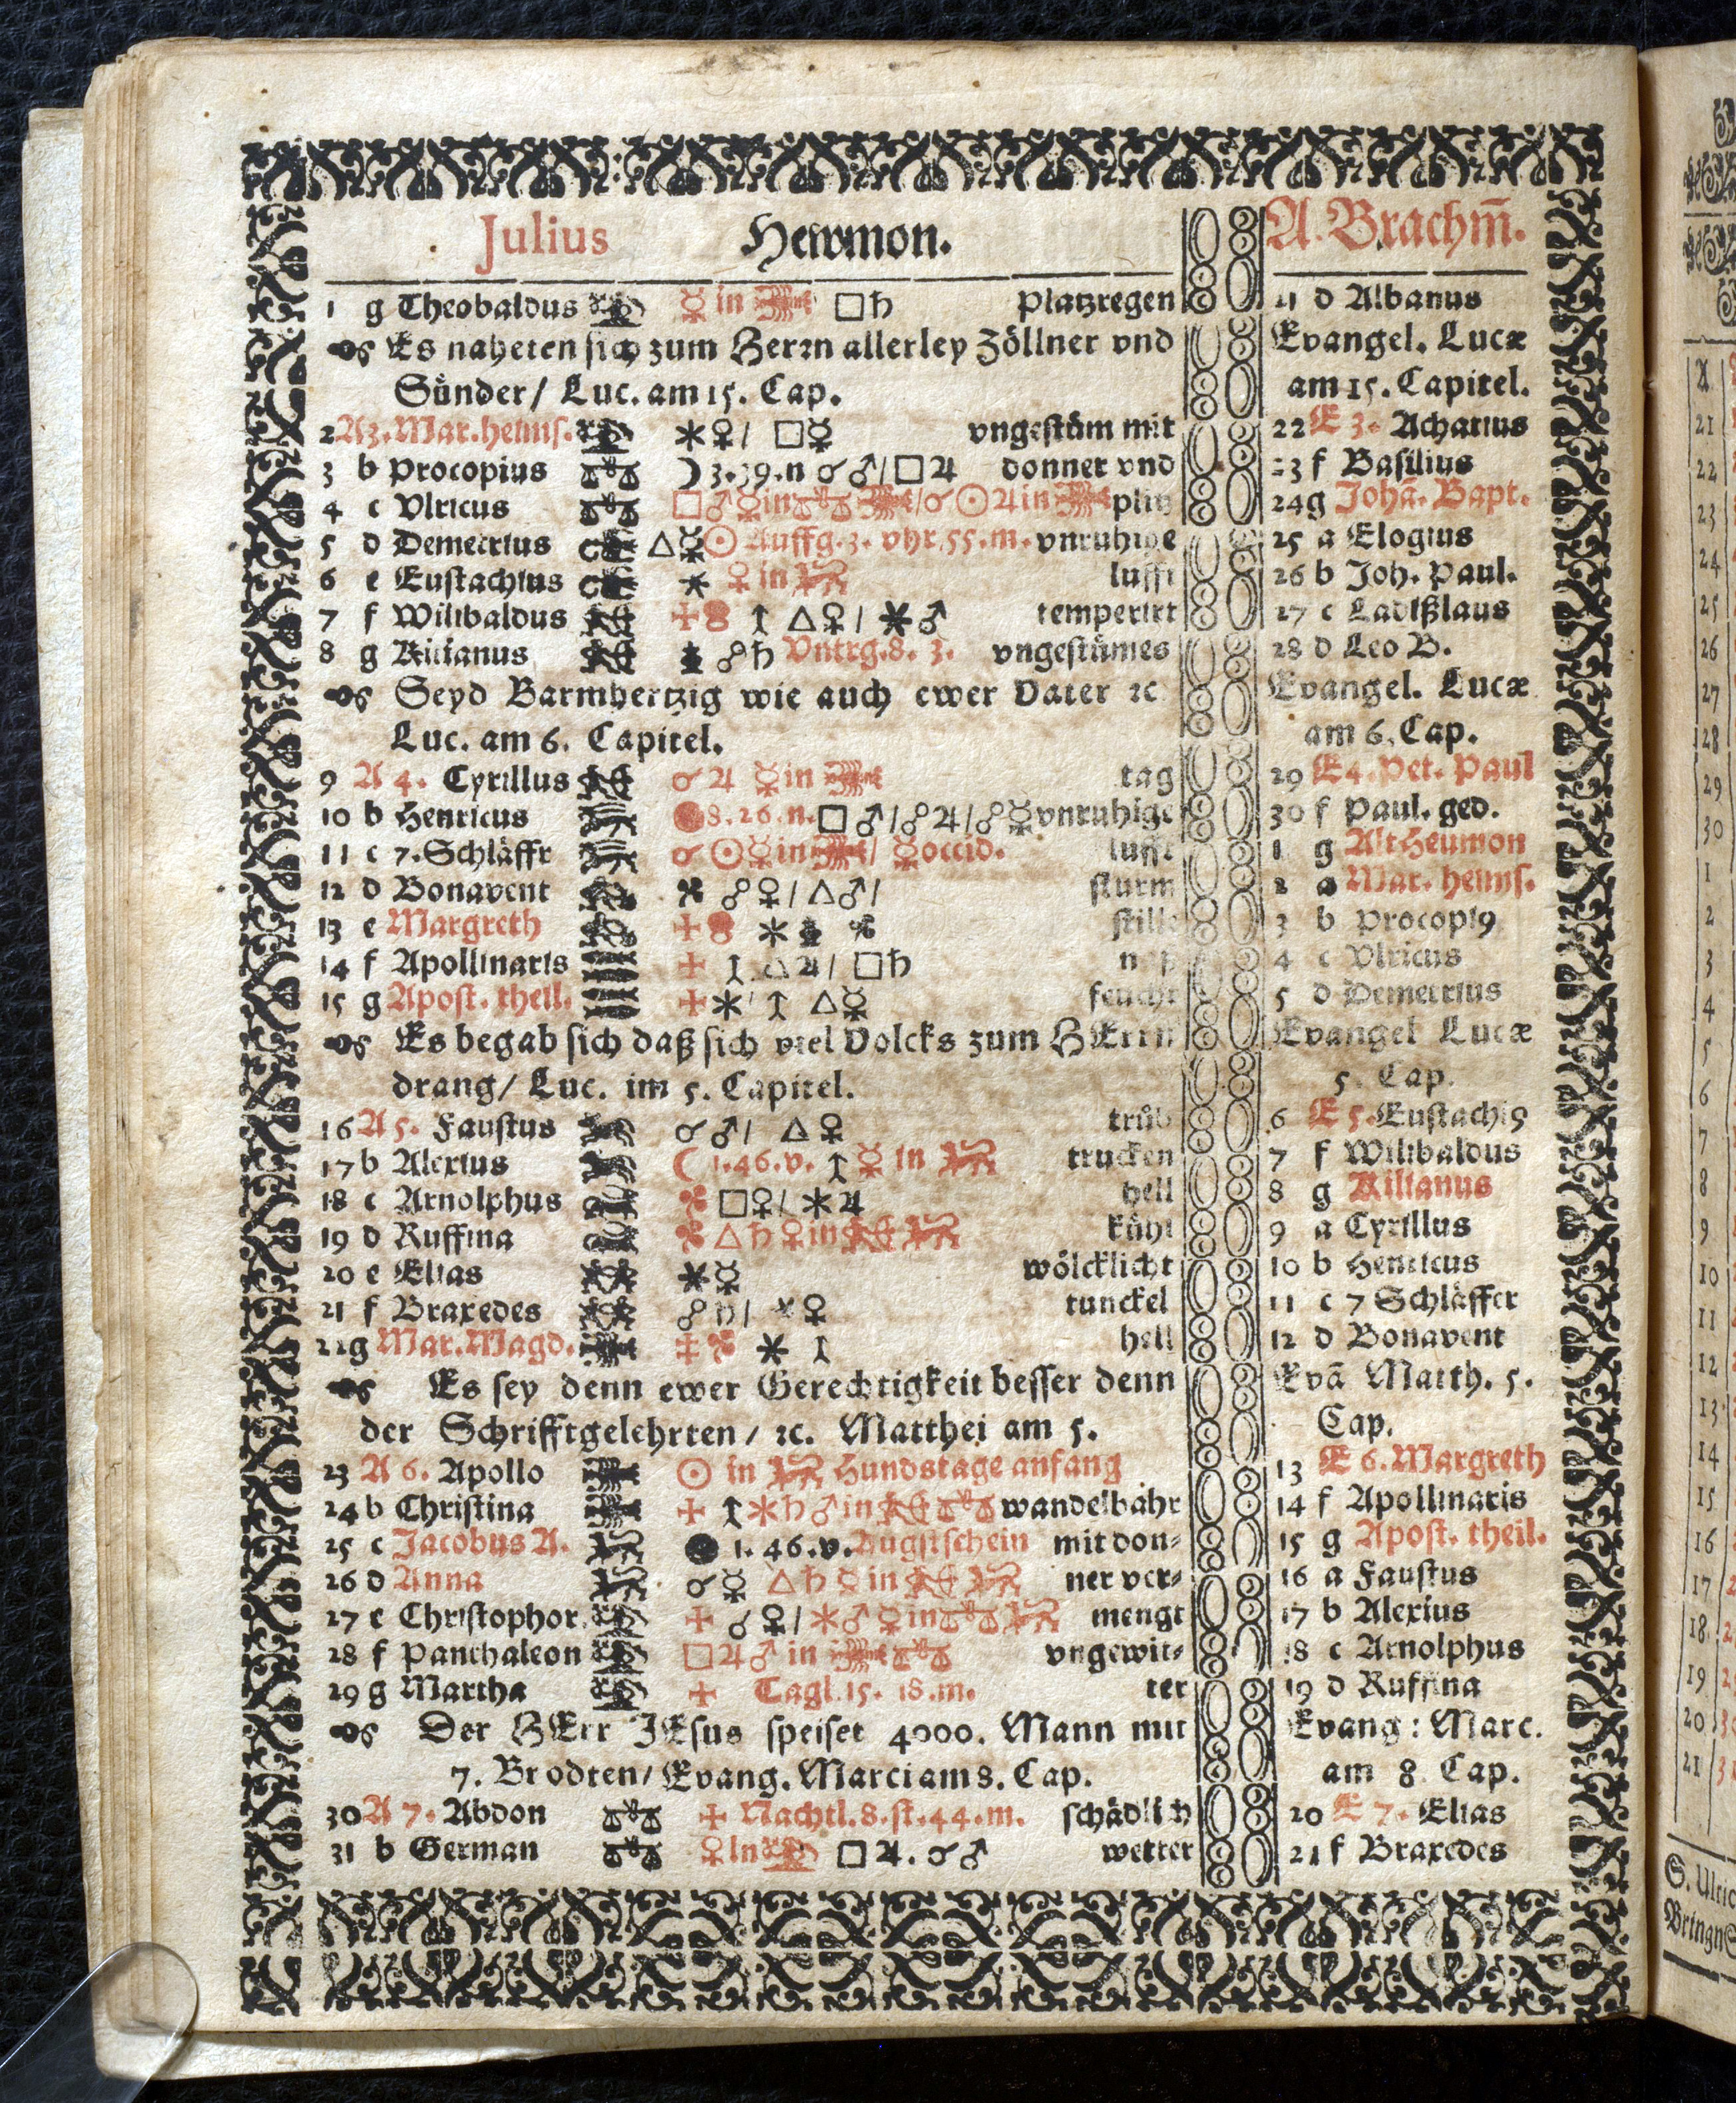 Julius Hewmon. A. Brachm̄.
1 g Theobaldus ☿ in □♄ Platzregen 21 d Albanus
Es naheten sich zum Herrn allerley Zöllner vnd Evangel. Lucæ
Sünder/ Luc. am 15. Cap. am 15. Capitel.
2 A 3. Mar. heims. ⚹♀/ □☿ vngestüm mit 22 E 3. Achatius
3 b Procopius ☽ 3.39.n ☌♂/□♃ donner vnd 23 f Basilius
4 c Vlricus □♂☿in /☌☉♃in plitz 24 g Johā. Bapt.
5 d Demetrius △☿☉ Auffg. 3. vhr 55. m. vnruhige 25 a Elogius
6 e Eustachius ⚹ ♀ in lufft 26 b Joh. Paul.
7 f Wilibaldus △♀/ ⚹♂ temperirt 27 c Ladißlaus
8 g Kilianus ☍♄ Vntrg. 8. 3. vngestümes 28 d Leo B.
Seyd Barmhertzig wie auch ewer Vater ꝛc Evangel. Lucæ
Luc. am 6. Capitel. am 6. Cap.
9 A 4. Cyrillus ☌♃ ☿in tag 29 E 4. Pet. Paul
10 b Henricus 8.26.n. □♂/☍♃/☍☿ vnruhige 30 f Paul. ged.
11 c 7. Schläffr ☌☉☿in / ☿occid. lufft 1 g Alt Heumon
12 d Bonavent ☍♀/△♂/ sturm 2 a Mar. heims.
13 e Margreth ⚹ stille 3 b Procopi9
14 f Apollinaris △♃/ □♄ 4 c Vlricus
15 g Apost. theil. ⚹ △☿ feucht 5 d Demetrius
Es begab sich daß sich viel Volcks zum HErrn Evangel Lucæ
drang/ Luc. im 5. Capitel. 5. Cap.
16 A 5. Faustus ☌♂/ △♀ trüb 6 E 5. Eustachi9
17 b Alexius ☾ 1.46.v. ☿ in trucken 7 f Wilibaldus
18 c Arnolphus □♀/ ⚹♃ hell 8 g Kilianus
19 d Ruffina △♄♀in kühl 9 a Cyrillus
20 e Elias ⚹☿ wölcklicht 10 b Henricus
21 f Braxedes ☍♄/ ⚹♀ tunckel 11 c 7 Schläffer
22 g Mar. Magd. ⚹ hell 12 d Bonavent
Es sey denn ewer Gerechtigkeit besser denn Evā Matth. 5.
der Schrifftgelehrten/ ꝛc. Matthei am 5. Cap.
23 A 6. Apollo ☉ in Hundstage anfang 13 E 6. Margreth
24 b Christina ⚹♄♂in wandelbahr 14 f Apollinaris
25 c Jacobus A. 1. 46. v. Augstschein mit don- 15 g Apost. theil.
26 d Anna ☌☿ △♄☿in ner ver- 16 a Faustus
27 e Christophor. ☌♀/⚹♂☿in mengt 17 b Alexius
28 f Panthaleon □♃♂ in vngewit- 18 c Arnolphus
29 g Martha Tagl. 15. 18. m. ter 19 d Ruffina
Der HErr JEsus speiset 4000. Mann mit Evang: Marc.
7. Brodten/ Evang. Marci am 8. Cap. am 8. Cap.
30 A 7. Abdon Nachtl. 8. st. 44. m. schädlich 20 E 7. Elias
31 b German ♀in □♃. ☌♂ wetter 21 f Braxedes